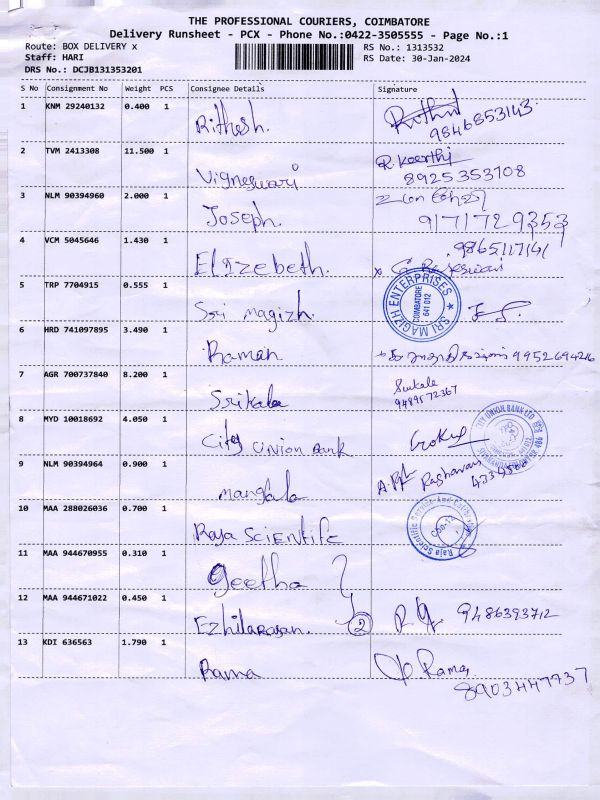 THE PROFESSIONAL COURIERS, COIMBATORE
Delivery Runsheet - PCX - Phone No.:0422-3505555 - Page No.:1
Route: BOX DELIVERY x
RS No.: 1313532
Staff: HARI
RS Date: 30-Jan-2024
DRS No.: DCJB131353201
S No Consignment No Weight PCS Consignee Details Signature
1 KNM 29240132 0.400 1 Rithesh. Rithu
9846853143
2 TVM 2413308 11.500 1 Vigneswari R. Keerthi
8925353708
3 NLM 90394960 2.000 1 Joseph.
9171729353
4 VCM 5045646 1.430 1 Elizebeth. 9865117141
x G. Rajeswari
5 TRP 7704915 0.555 1 Sri Magizh.
SRI MAGIZH ENTERPRISES
COIMBATORE
641 012
6 HRD 741097895 3.490 1 Raman 9952694216
7 AGR 700737840 8.200 1 Srikala Srikala
9489572367
8 MYD 10018692 4.050 1 City Union Bank Gokul
CITY UNION BANK LTD
9 NLM 90394964 0.900 1 Mangala Raghavan
10 MAA 288026036 0.700 1 Raja Scientific
Raja Scientific
11 MAA 944670955 0.310 1 Geetha
12 MAA 944671022 0.450 1 Ezhilarasan. 2 9486393712
13 KDI 636563 1.790 1 Rama Rama
8903447737